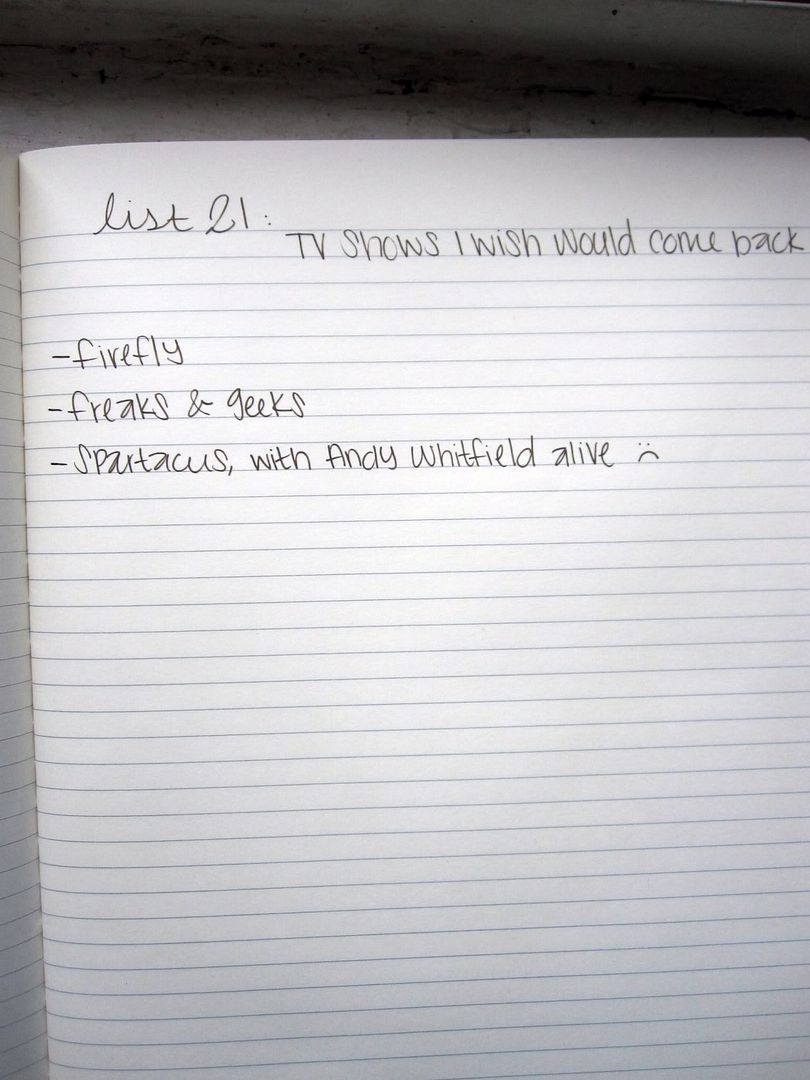 list 21:
TV shows I wish would come back
- firefly
- freaks & geeks
- Spartacus, with Andy Whitfield alive :(